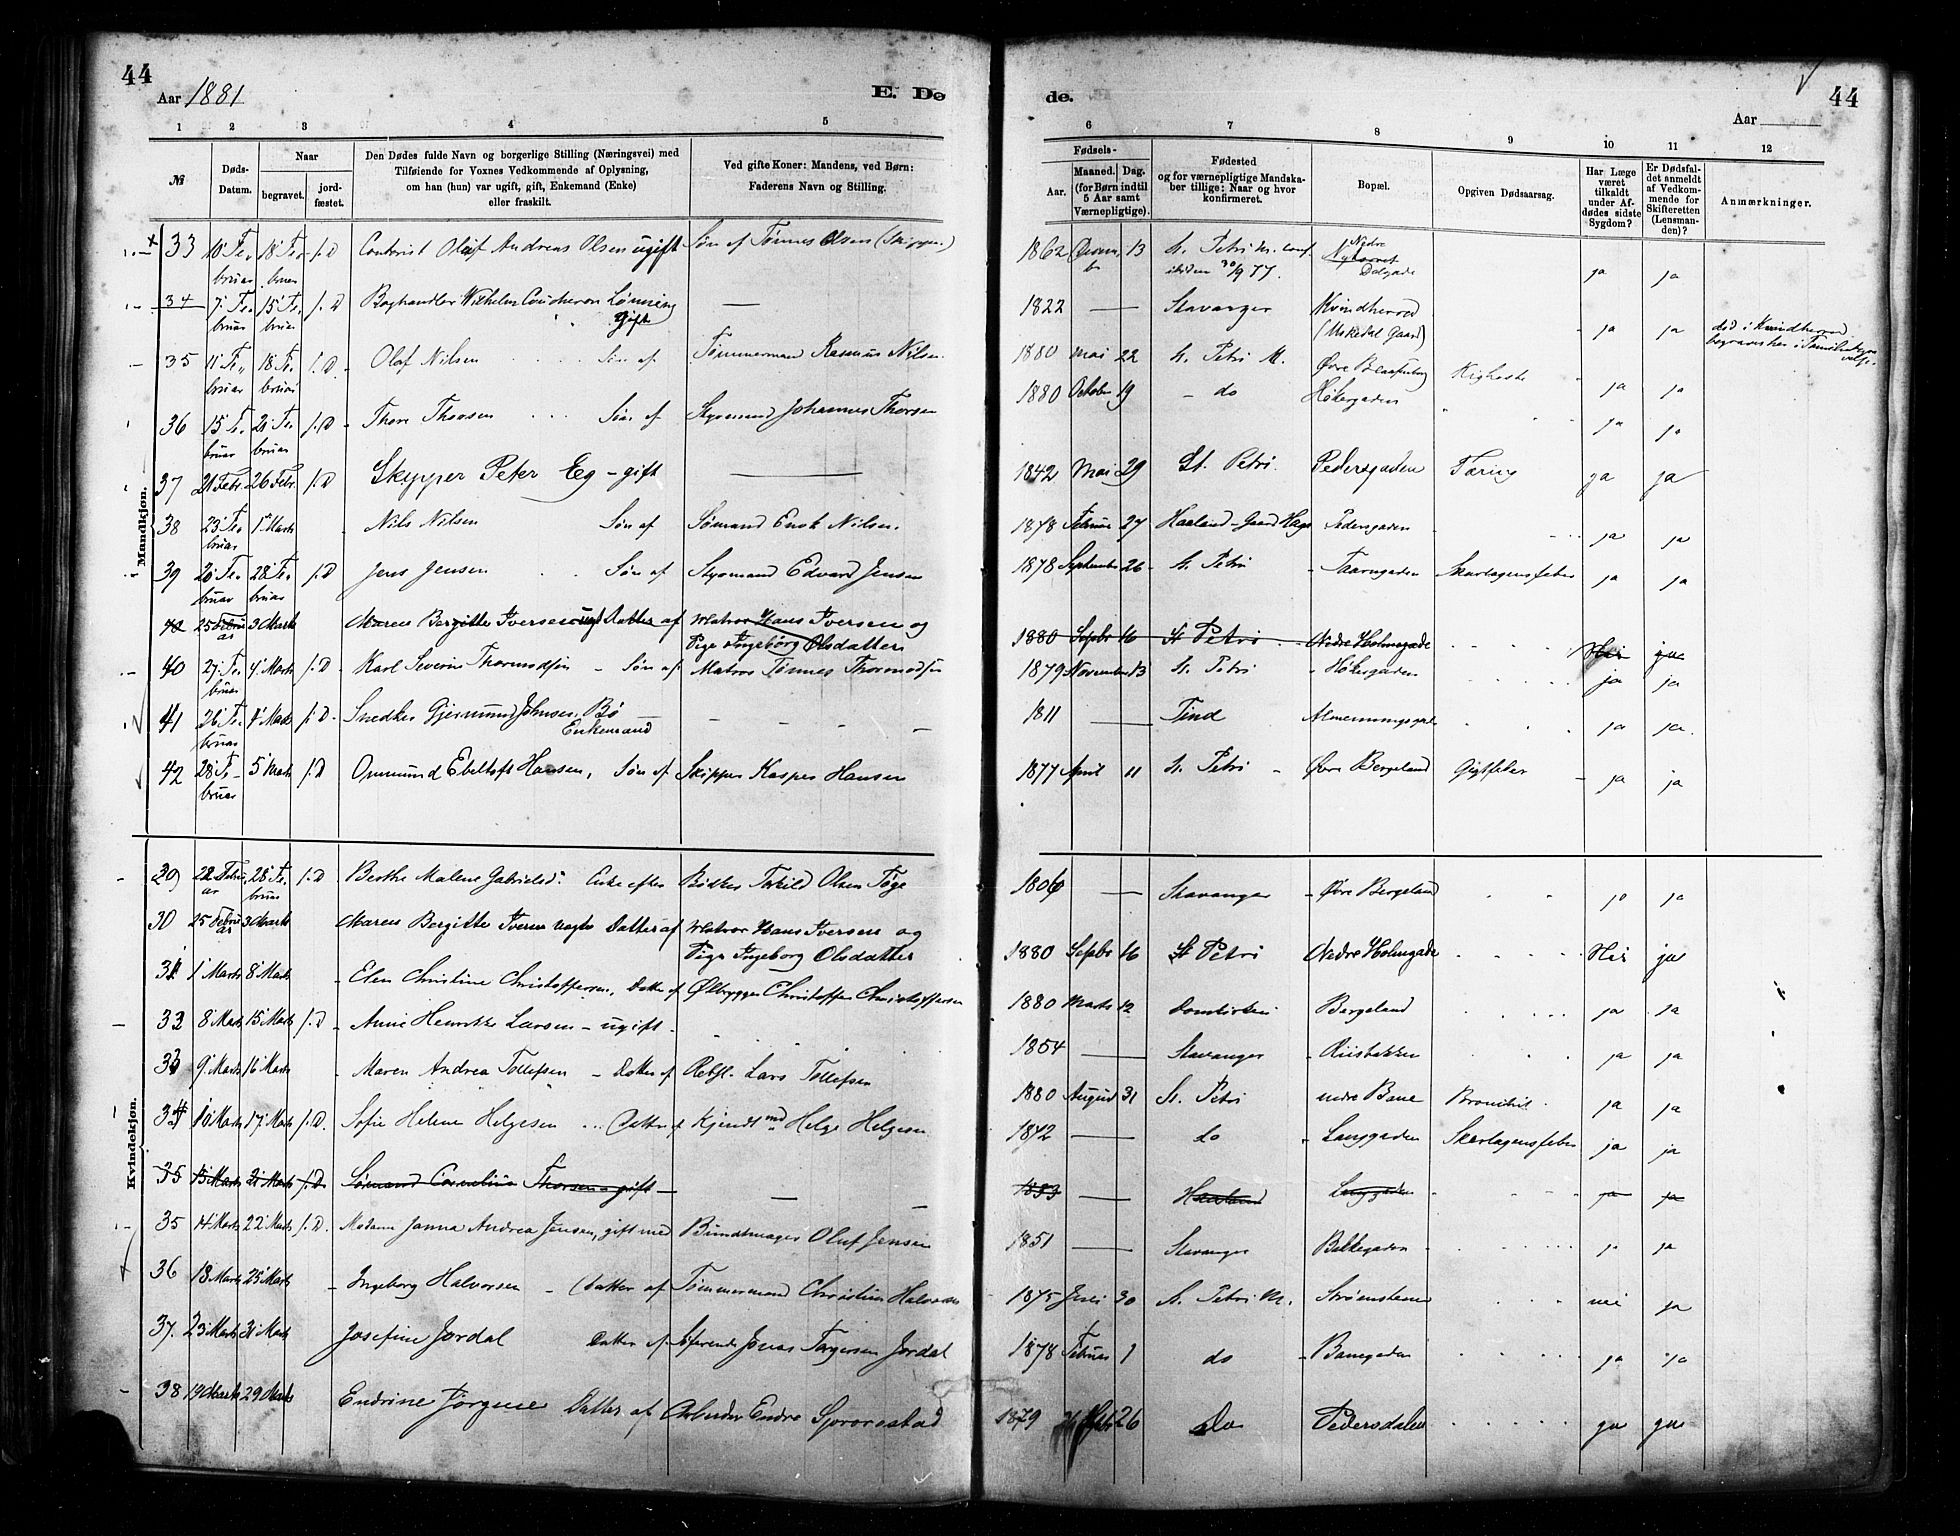 44
Aar 1881
E. De
1 2 3 4 5
№
Døds-Datum.
Naar
begravet.
jord-fæstet.
Den Dødes fulde Navn og borgerlige Stilling (Næringsvei) med
Tilføiende for Voxnes Vedkommende af Oplysning,
om han (hun) var ugift, gift, Enkemand (Enke)
eller fraskilt.
Ved gifte Koner: Mandens, ved Børn:
Faderens Navn og Stilling.
Mandkjøn.
33 10 Februar 18 Februar j.D Contorist Oluf Andreas Olsen ugift Søn af Tønnes Olsen (Skipper)
34 7 Februar 15 Februar j.D Boghandler Wilhelm Coucheron Lønning —
gift
35 11 Februar 18 Februar j.D. Olaf Nilsen Søn af Tømmermand Rasmus Nilsen
36 15 Februar 21 Februar j.D Thore Thorsen Søn af Styrmand Johannes Thorsen
37 21 Febr. 26 Febr. j.D Skipper Peter Eg - gift —
38 23 Februar 1 Marts Nils Nilsen Søn af Sømand Enok Nilsen.
39 20 Februar 28 Februar j.D Jens Jensen Søn af Styrmand Edvard Jensen
40 25 Februar 3 Marts Maren Bergitte Iversen Datter af Matros Hans Iversen og
Pige Ingeborg Olsdatter
40 27 Februar 4 Marts j.D Karl Severin Thormodsen - Søn af Matros Tønnes Thormodsen
41 26 Februar 4 Marts j.D. Snedker Gjermund Johnsen Bø — — — —
Enkemand
42 28 Februar 5 Marts j.D Ommund Ebeltoft Hansen, Søn af Skipper Kasper Hansen
Kvindekjøn.
29 22 Februar 28 Februar j.D Berthe Malene Gabrielsd. Enke efter Bødker Torkild Olsen Tøge
30 25 Februar 3 Marts Maren Bergitte Iversen uægte Datter af Matros Hans Iversen og
Pige Ingeborg Olsdatter
31 1 Marts 8 Marts Elen Christine Christoffersen, Datter af Ølbrygger Christoffer Christoffersen
32 8 Marts 15 Marts j.D - Anne Henrikke Larsen - ugift -
33 9 Marts 16 Marts - Maren Andrea Tollefsen - Datter af Rebsl. Lars Tollefsen
34 10 Marts 17 Marts j.D. Sofie Helene Helgesen Datter af Helge Helgesen
35 15 Marts 21 Marts j.D Sømand Cornelius Thorsen gift — —
35 14 Marts 22 Marts j.D. Madame Janna Andrea Jensen, gift med Bundtmager Oluf Jensen
36 18 Marts 25 Marts - Ingeborg Halvorsen - Datter af Tømmermand Christian Halvorsen
37. 23 Marts 31 Marts Josefine Jordal Datter af Søfarende Jonas Torgersen Jordal
38 19 Marts 29 Marts Endrine Jørgine Datter af Arbeider Endre
de.
44
Aar
6 7 8 9 10 11 12
Fødsels-
Aar.
Maaned. Dag.
(for Børn indtil
5 Aar samt
Værnepligtige).
Fødested
og for værnepligtige Mandska-
ber tillige: Naar og hvor
konfirmeret.
Bopæl.
Opgiven Dødsaarsag.
Har Læge
været
tilkaldt
under Af-
dødes sidste
Sygdom?
Er Dødsfal-
det anmeldt
af Vedkom-
mende for
Skifteretten
(Lensman-
den)?
Anmærkninger.
1862 13 St. Petri M. conf. Nedre
30/9 77. Dalgade ja ja
1822 — Stavanger Kvindherred
(Uskedal Gaard) ja ja død i Kvindherred
1880 Mai 22 St. Petri M. Øvre Blaasenborg Kighoste ja ja
1880 October 19 - do Høkergaden ja ja
1842 Mai 29 St. Petri Pedersgaden Tæring ja ja
1878 Februar 27 Haaland - Gaard Pedersgaden ja ja
1878 September 26 St. Petri Taarngaden Skarlagensfeber ja ja
1880 Sepbr 16 St Petri Nedre Holmegade Nei ja
1879 November 13 St. Petri Høkergaden ja ja
1811 — Tind ja ja
1877 April 11 St. Petri - Øvre Bergeland Gigtfeber ja ja
1806 — Stavanger Øvre Bergeland ja ja
1880 Sepbr 16 St Petri Nedre Holmegade Nei ja
1880 Marts 12 Domkirken Bergeland ja ja
1854 — Stavanger Riisbakken ja ja
1880 August 31 St. Petri nedre Bane ja ja
1842 — do Langgaden Skarlagensfeber ja ja
1853 — Haaland Langgaden ja ja
1851 — Stavanger Bakkegaden ja ja
1875 Juli 30 St. Petri M. Strømsteen nei ja
1878 Februar 1 do - Banegaden ja ja
1879 26 Do Pedersdalen ja ja